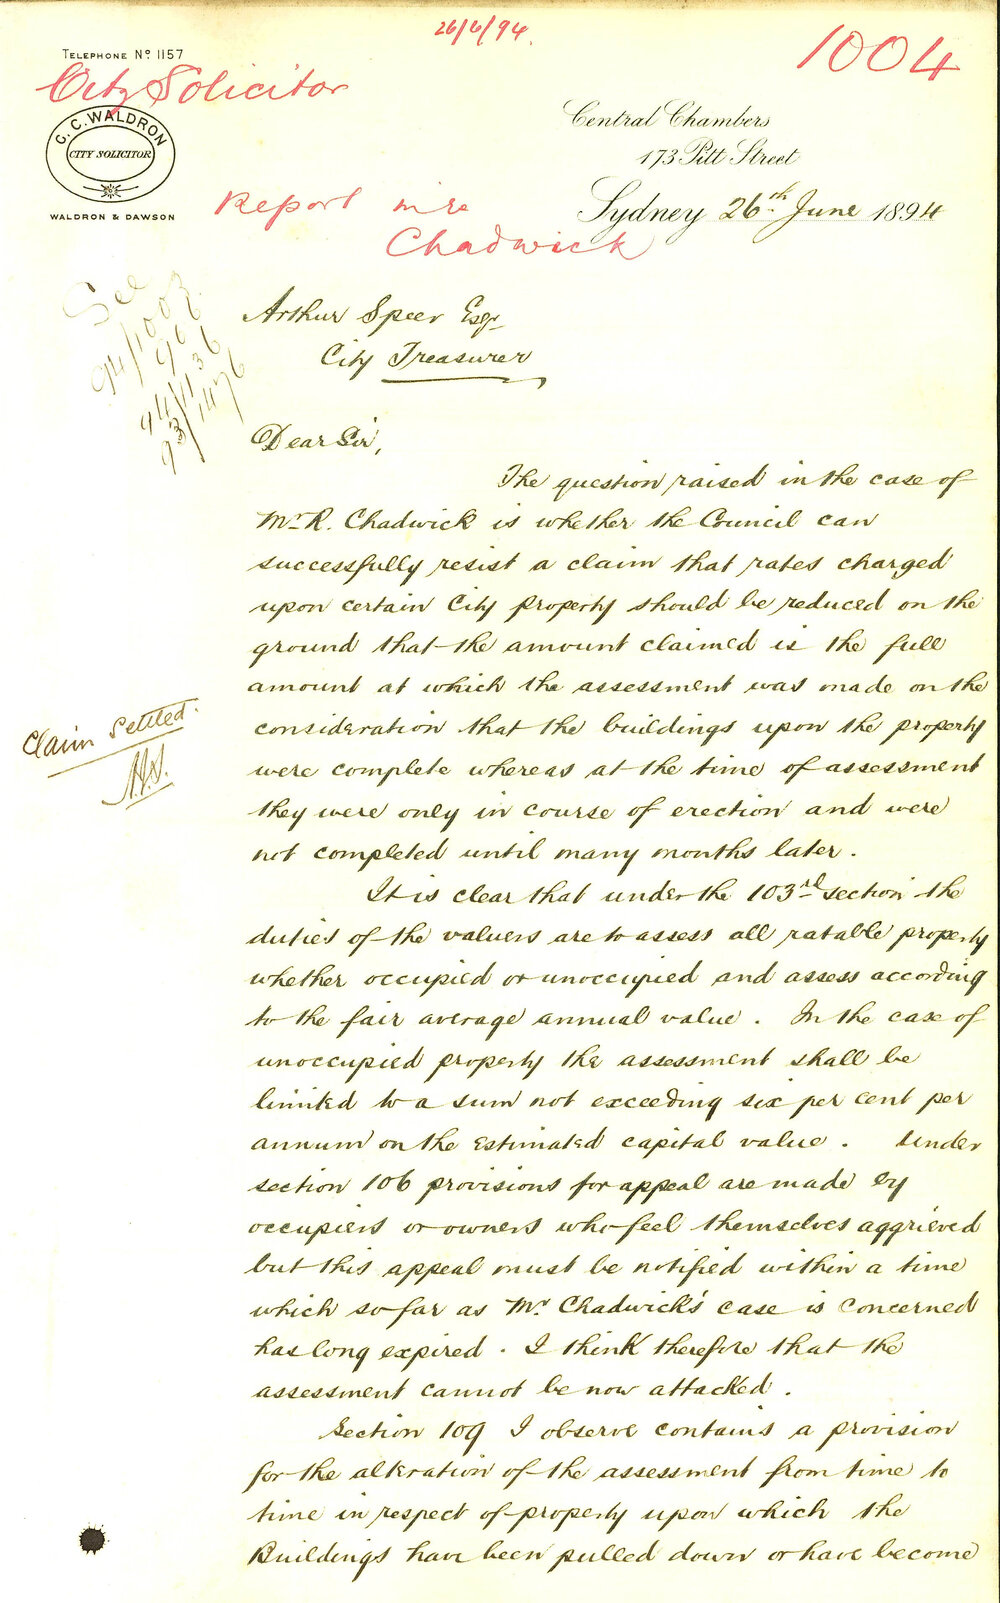 26/6/94.
1004
TELEPHONE No 1157
City Solicitor
C. C. WALDRON
CITY SOLICITOR
WALDRON & DAWSON
Central Chambers
173 Pitt Street
Sydney 26th June 1894
Report in re
Chadwick
See
94/1003
906
94/1136
93/1476
Arthur Speer Esqr
City Treasurer
Dear Sir,
The question raised in the case of
Mr R. Chadwick is whether the Council can
successfully resist a claim that rates charged
upon certain City property should be reduced on the
ground that the amount claimed is the full
amount at which the assessment was made on the
consideration that the buildings upon the property
were complete whereas at the time of assessment
they were only in course of erection and were
not completed until many months later.
Claim settled.
It is clear that under the 103rd section the
duties of the valuers are to assess all ratable property
whether occupied or unoccupied and assess according
to the fair average annual value. In the case of
unoccupied property the assessment shall be
limited to a sum not exceeding six per cent per
annum on the estimated capital value. Under
section 106 provisions for appeal are made by
occupiers or owners who feel themselves aggrieved
but this appeal must be notified within a time
which so far as Mr Chadwick's case is concerned
has long expired. I think therefore that the
assessment cannot be now attacked.
Section 109 I observe contains a provision
for the alteration of the assessment from time to
time in respect of property upon which the
Buildings have been pulled down or have become